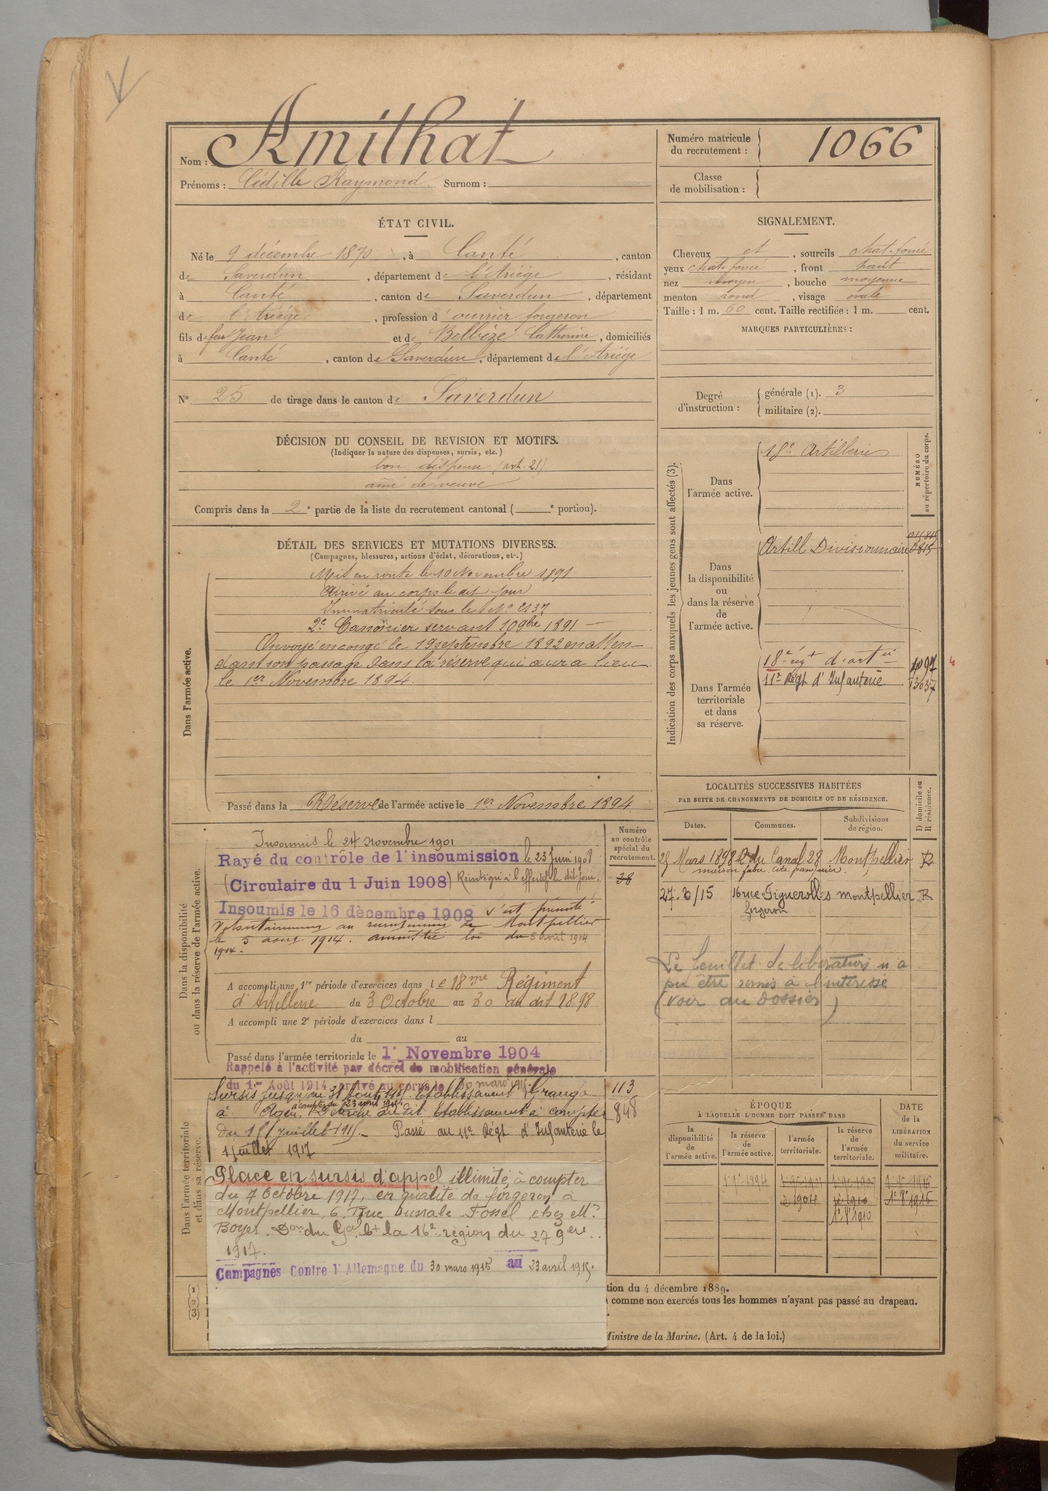 Nom : Amilhat
Prénoms : Cédille Raymond Surnom :
Numéro matricule du recrutement : 1066
Classe de mobilisation :
ÉTAT CIVIL.
Né le 9 décembre 1870, à Canté, canton
de Saverdun, département de l'Ariège, résidant
à Canté, canton de Saverdun, département
de l'Ariège, profession d'ouvrier forgeron
fils de feu Jean et de Belbèze Catherine, domiciliés
à Canté, canton de Saverdun, département de l'Ariège
N° 25 de tirage dans le canton de Saverdun
SIGNALEMENT.
Cheveux et, sourcils chat. foncé
yeux chat. foncé, front haut
nez moyen, bouche moyenne
menton rond, visage ovale
Taille : 1 m. 60 cent. Taille rectifiée : 1 m. cent.
MARQUES PARTICULIÈRES :
Degré d'instruction : générale (1). 3
militaire (2).
DÉCISION DU CONSEIL DE REVISION ET MOTIFS.
(Indiquer la nature des dispenses, sursis, etc.)
bon dispensé (art. 21)
aîné de veuve
Compris dans la 2e partie de la liste du recrutement cantonal (e portion).
DÉTAIL DES SERVICES ET MUTATIONS DIVERSES.
(Campagnes, blessures, actions d'éclat, décorations, etc.)
Dans l'armée active.
Mis en route le 10 Novembre 1891
Arrivé au corps le dit jour
Immatriculé sous le N° 2137
2e Canonnier servant 10 9bre 1891
Envoyé en congé le 19 septembre 1892 en atten-
dant son passage dans la réserve qui aura lieu
le 1er Novembre 1894
Passé dans la Réserve de l'armée active le 1er Novembre 1894
Indication des corps auxquels les jeunes gens sont affectés (3).
NUMÉRO au répertoire du corps.
Dans l'armée active.
18e Artillerie
Dans la disponibilité ou dans la réserve de l'armée active.
Artill Divisionnaire
Dans l'armée territoriale et dans sa réserve.
18e régt d'artie 4097
11e Régt d'Infanterie 13637
Dans la disponibilité ou dans la réserve de l'armée active.
Numéro au contrôle spécial du recrutement.
Insoumis le 24 novembre 1901
Rayé du contrôle de l'insoumission le 23 Juin 1908
(Circulaire du 1 Juin 1908) Réintégré à l'effectif le dit jour.
28
Insoumis le 16 décembre 1908 s'est présenté
volontairement au recrutement de Montpellier
le 5 août 1914. amnistié loi du 5 août 1914
1914.
A accompli une 1re période d'exercices dans le 18me Régiment
d'Artillerie du 3 Octobre au 30 du dit 1898
A accompli une 2e période d'exercices dans l
du au
Passé dans l'armée territoriale le 1er Novembre 1904
Rappelé à l'activité par décret de mobilisation générale
du 1er Août 1914 arrivé au corps le 30 mars 1915
Dans l'armée territoriale et dans sa réserve.
Sursis jusqu'au 31 Août 1915 Etablissement Grange 113
à compter du 23 avril 1915
à dit établissement à compter 848
du 1er juillet 1915. Passé au 11e Régt d'Infanterie le
1 juillet 1917
Placé en sursis d'appel illimité à compter
du 7 octobre 1917, en qualité de forgeron à
Montpellier 6, Rue chez Mr
Boyer. Don du Gal Ct la 16e région du 27 9bre
1917.
Campagnes Contre l'Allemagne du 30 mars 1915 au 23 avril 1915.
LOCALITÉS SUCCESSIVES HABITÉES
PAR SUITE DE CHANGEMENTS DE DOMICILE OU DE RÉSIDENCE.
Dates. Communes. Subdivisions de région. D domicile ou R résidence.
29 Mars 1898 28 Montpellier R
27.6/15 16 rue Figuerolles montpellier R
forgeron
Le feuillet de libération n'a
pu être remis à l'intéressé
(voir au Dossier)
ÉPOQUE
À LAQUELLE L'HOMME DOIT PASSER DANS
la disponibilité de l'armée active. la réserve de l'armée active. l'armée territoriale. la réserve de l'armée territoriale.
DATE de la LIBÉRATION du service militaire.
(1)
(2)
(3)
tion du 4 décembre 1889.
comme non exercés tous les hommes n'ayant pas passé au drapeau.
Ministre de la Marine. (Art. 4 de la loi.)